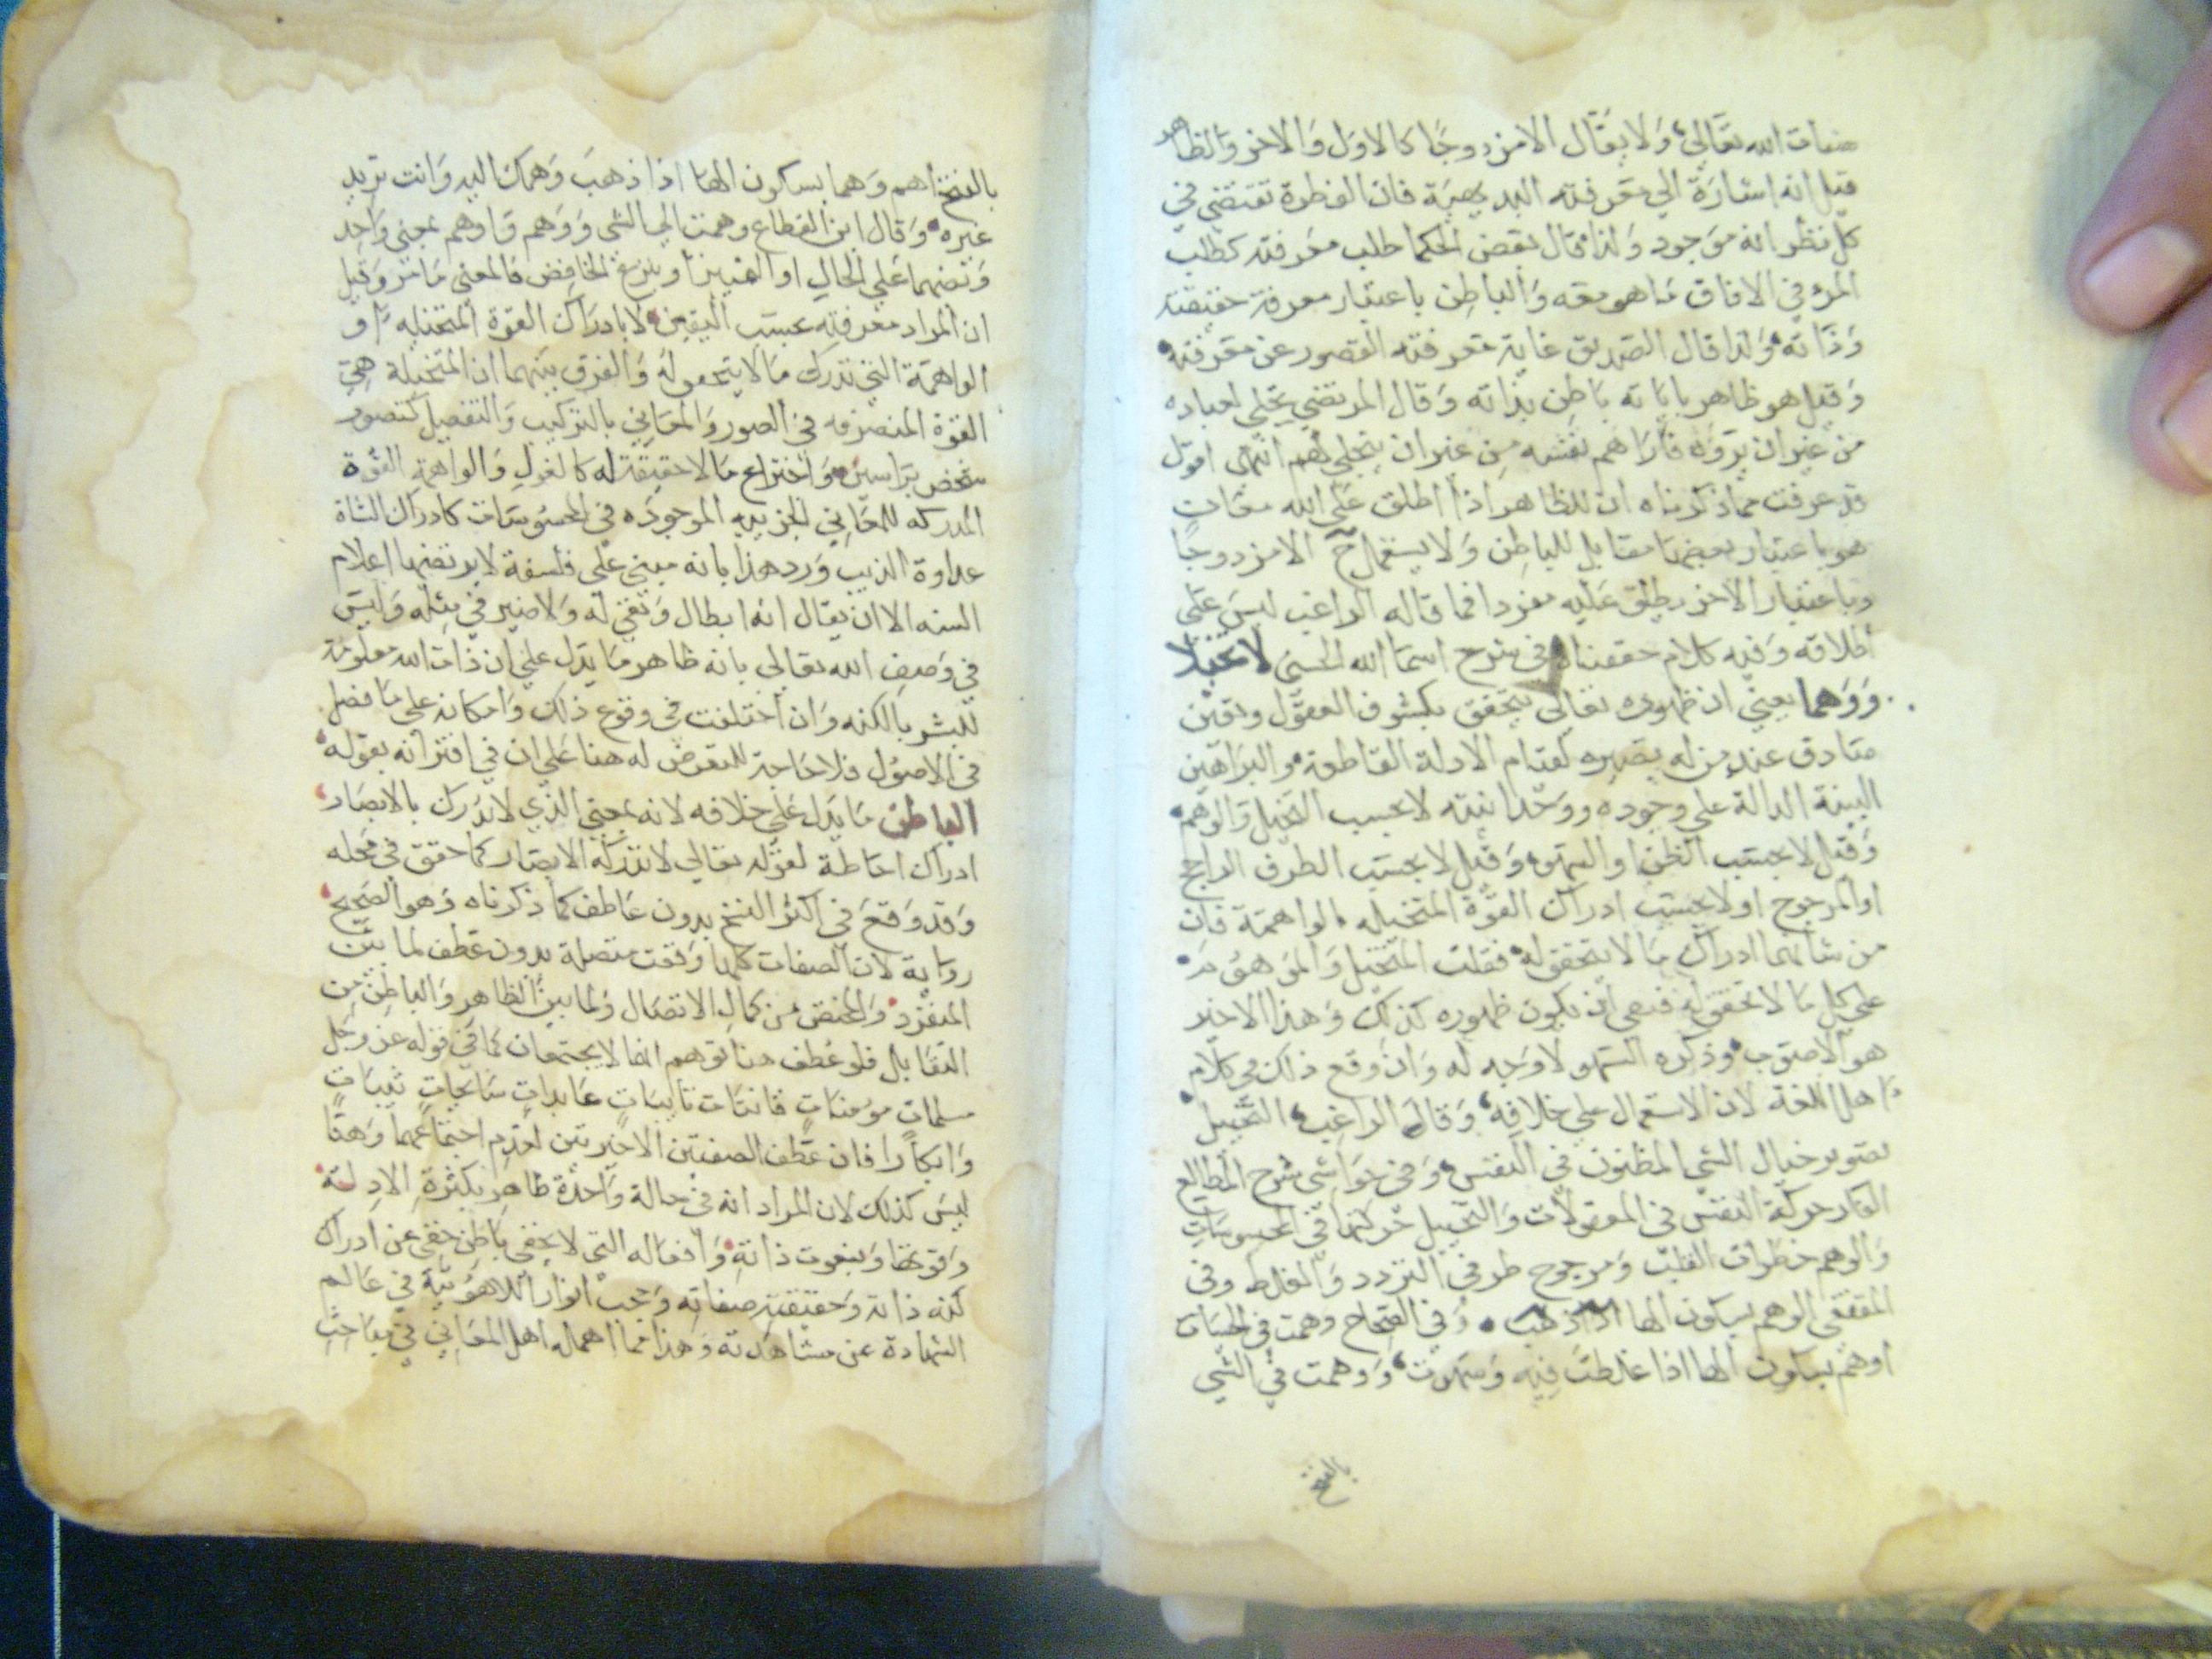 صفات الله تعالى ولا يقال الا مزدوجا كالاول والاخر والظاهر
قيل انه اشارة الي معرفته البديهية فان الفطرة تقتضي في
كل نظر انه موجود ولذا قال بعض الحكما طلب معرفته كطلب
المرء في الافاق ما هو معه والباطن باعتبار معرفة حقيقته
وذاته ولذا قال الصديق غاية معرفته القصور عن معرفته
وقيل هو ظاهر باياته باطن بذاته وقال المرتضي تجلي لعباده
من غير ان يروه فاراهم نفسه من غير ان يتجلي لهم انتهى اقول
قد عرفت مما ذكرناه ان للظاهر اذا اطلق على الله معان
هو باعتبار بعضها مقابل للباطن ولا يستعمل ح الا مزدوجا
وباعتبار الاخر يطلق عليه مفردا فما قاله الراغب ليس على
اطلاقه وفيه كلام حققناه في شرح اسما الله الحسنى لا تخيلا
ووهما يعني ان ظهوره تعالى يتحقق بكشوف العقول ويقين
صادق عند من له بصيره لقيام الادلة القاطعة والبراهين
البينة الدالة علي وجوده ووحدانيته لا بحسب التخيل والوهم
وقيل لا بحسب الظن او السهو وقيل لا بحسب الطرف الراجح
او المرجوح او لا بحسب ادراك القوة المتخيله والواهمة فان
من شانهما ادراك ما لا يتحقق له فقلت المتخيل والموهوم
على كل ما لا تحقق له فنعى ان يكون ظهوره كذلك وهذا الاخير
هو الاصوب وذكره السهو لا وجه له وان وقع ذلك في كلام
اهل اللغة لان الاستعمال على خلافه وقال الراغب التخييل
تصوير خيال الشي المظنون في النفس وفي حواشي شرح المطالع
الفكر حركة النفس في المعقولات والتخييل حركتها في المحسوسات
والوهم خطرات القلب ومرجوح طرفي التردد والغلط وفي
المقتفى الوهم بسكون الها اذا ذهب وفي الصحاح وهمت في الحساب
اوهم بسكون الها اذا غلطت فيه وسهوت ووهمت في الشي
بالفتح
بالفتح اهم وهما بسكون الها اذا ذهب وهمك اليه وانت تريد
غيره وقال ابن القطاع وهمت الى الشي ووهم واوهم بمعني واحد
ونصبهما علي الحال او التمييز او بنزع الخافض فالمعني ما مر وقيل
ان المراد معرفته بحسب اليقين لا بادراك القوة المتخيله او
الواهمة التي تدرك ما لا يتحقق له والفرق بينهما ان المتخيلة هي
القوة المتصرفه في الصور والمعاني بالتركيب والتفصيل كتصور
شخص براسين واختراع ما لا حقيقة له كالغول والواهمة القوة
المدركه للمعاني الجزييه الموجوده في المحسوسات كادراك الشاة
عداوة الذيب ورد هذا بانه مبني على فلسفة لا يرتضيها اعلام
السنه الا ان يقال انه ابطال ونفي له ولا ضير في مثله وليس
في وصف الله تعالى بانه ظاهر ما يدل علي ان ذات الله معلومة
للبشر بالكنه وان اختلفت في وقوع ذلك وامكانه على ما فصل
في الاصول فلا حاجة للتعرض له هنا علي ان في اقترانه بقوله
الباطن ما يدل علي خلافه لانه بمعني الذي لا تدرك بالابصار
ادراك احاطة لقوله تعالي لا تدركه الابصار كما حقق في محله
وقد وقع في اكثر النسخ بدون عاطف كما ذكرناه وهو الصحيح
رواية لان الصفات كلها وقعت متصلة بدون عطف لما بين
المتفرد والمختص من كمال الاتصال ولما بين الظاهر والباطن من
التقابل فلو عطف هنا توهم انها لا يجتمعان كما في قوله عز وجل
مسلمات مومنات قانتات تايبات عابدات سايحات ثيبات
وابكارا فان عطف الصفتين الاخيرتين لعدم اجتماعهما وهنا
ليس كذلك لان المراد انه في حالة واحدة ظاهر بكثرة الادلة
وقوتها وبنعوت ذاته وافعاله التي لا تخفى باطن خفي عن ادراك
كنه ذاته وحقيقة صفاته وحجب انوار اللاهوتية في عالم
الشهادة عن مشاهدته وهذا مما اهمله اهل المعاني في مباحث